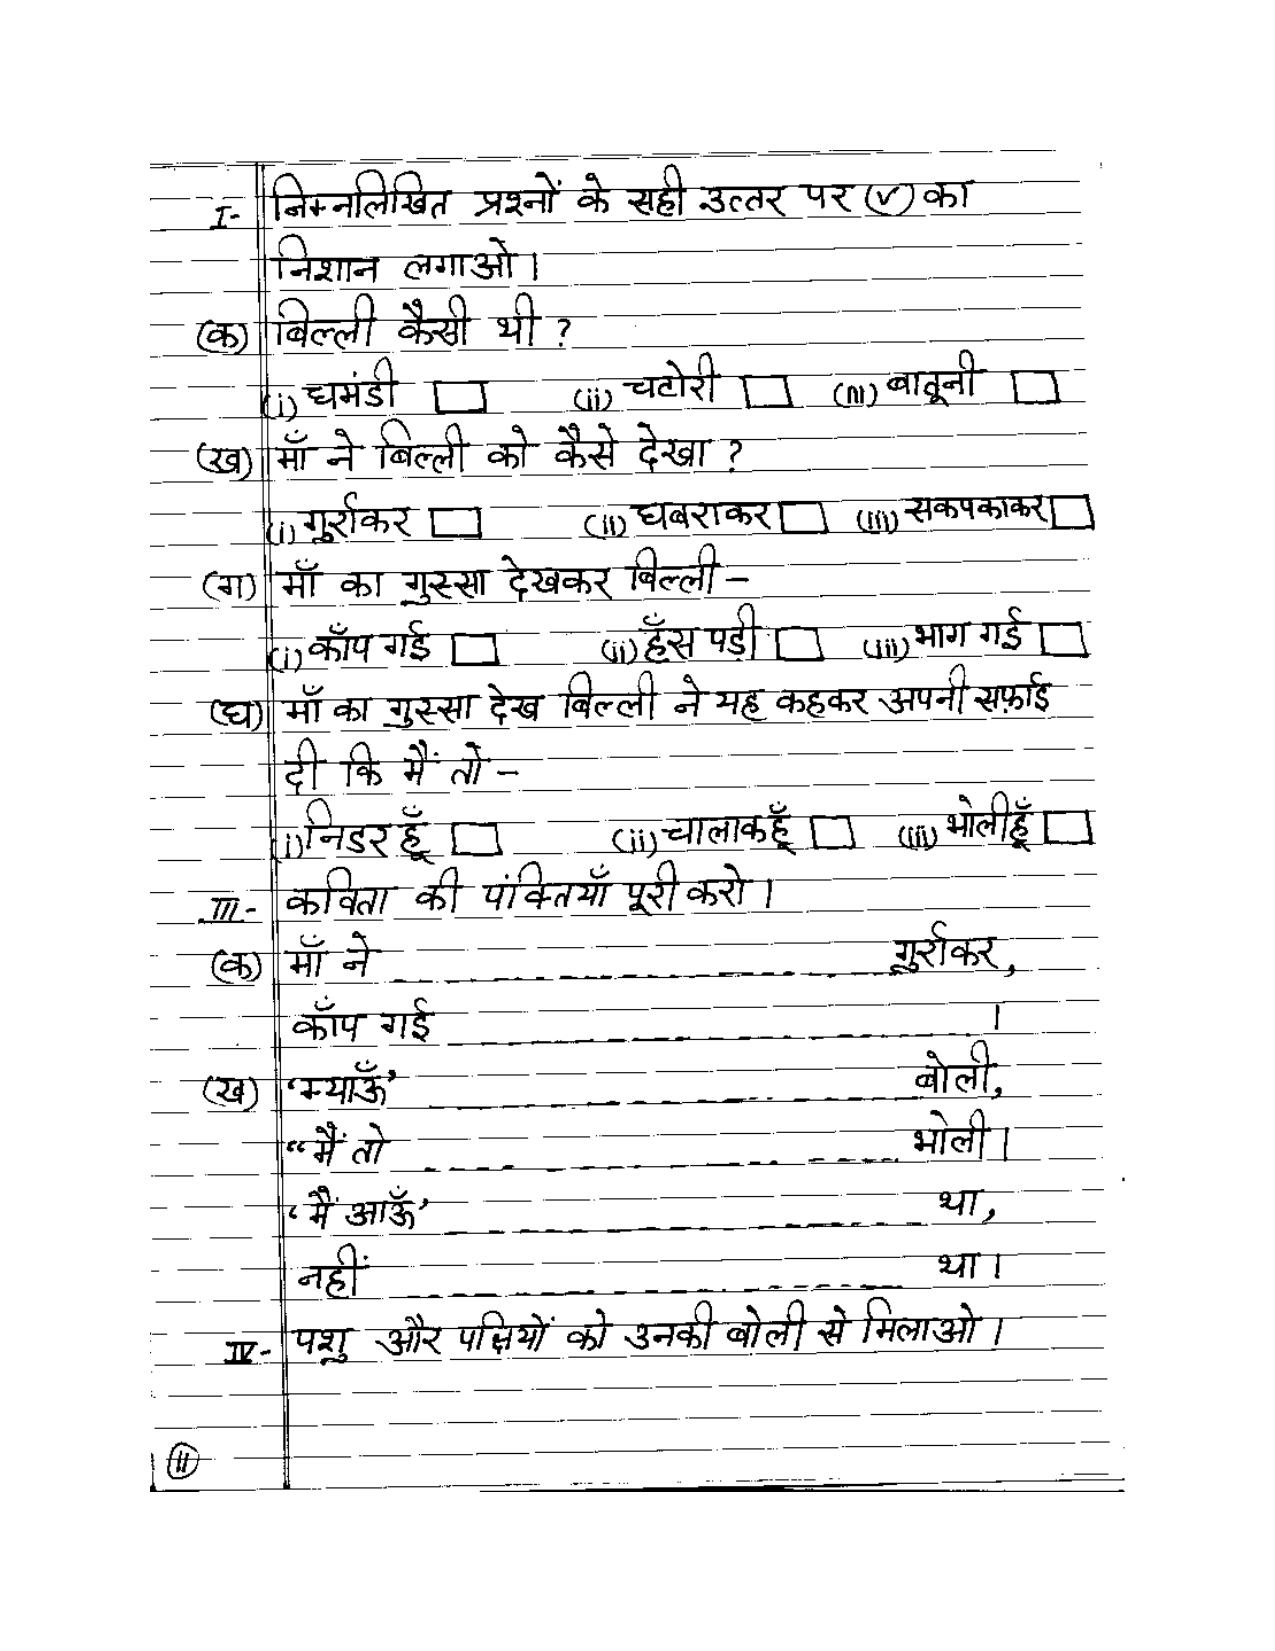 I- निम्नलिखित प्रश्नों के सही उत्तर पर (✓) का
निशान लगाओ।
(क) बिल्ली कैसी थी ?
(i) घमंडी (ii) चटोरी (iii) बातूनी
(ख) माँ ने बिल्ली को कैसे देखा ?
(i) गुर्राकर (ii) घबराकर (iii) सकपकाकर
(ग) माँ का गुस्सा देखकर बिल्ली –
(i) काँप गई (ii) हँस पड़ी (iii) भाग गई
(घ) माँ का गुस्सा देख बिल्ली ने यह कहकर अपनी सफ़ाई
दी कि मैं तो –
(i) निडर हूँ (ii) चालाक हूँ (iii) भोली हूँ
III- कविता की पंक्तियाँ पूरी करो।
(क) माँ ने ______________ गुर्राकर,
काँप गई ______________ ।
(ख) ‘म्याऊँ’ ______________ बोली,
“मैं तो ______________ भोली।
‘मैं आऊँ’ ______________ था,
नहीं ______________ था।
IV- पशु और पक्षियों को उनकी बोली से मिलाओ।
11